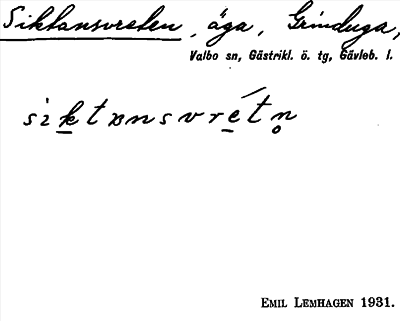 Siktansvreten, äga, Grinduga,
Valbo sn, Gästrikl. ö. tg, Gävleb. l.
siktansvrétn̥
EMIL LEMHAGEN 1931.